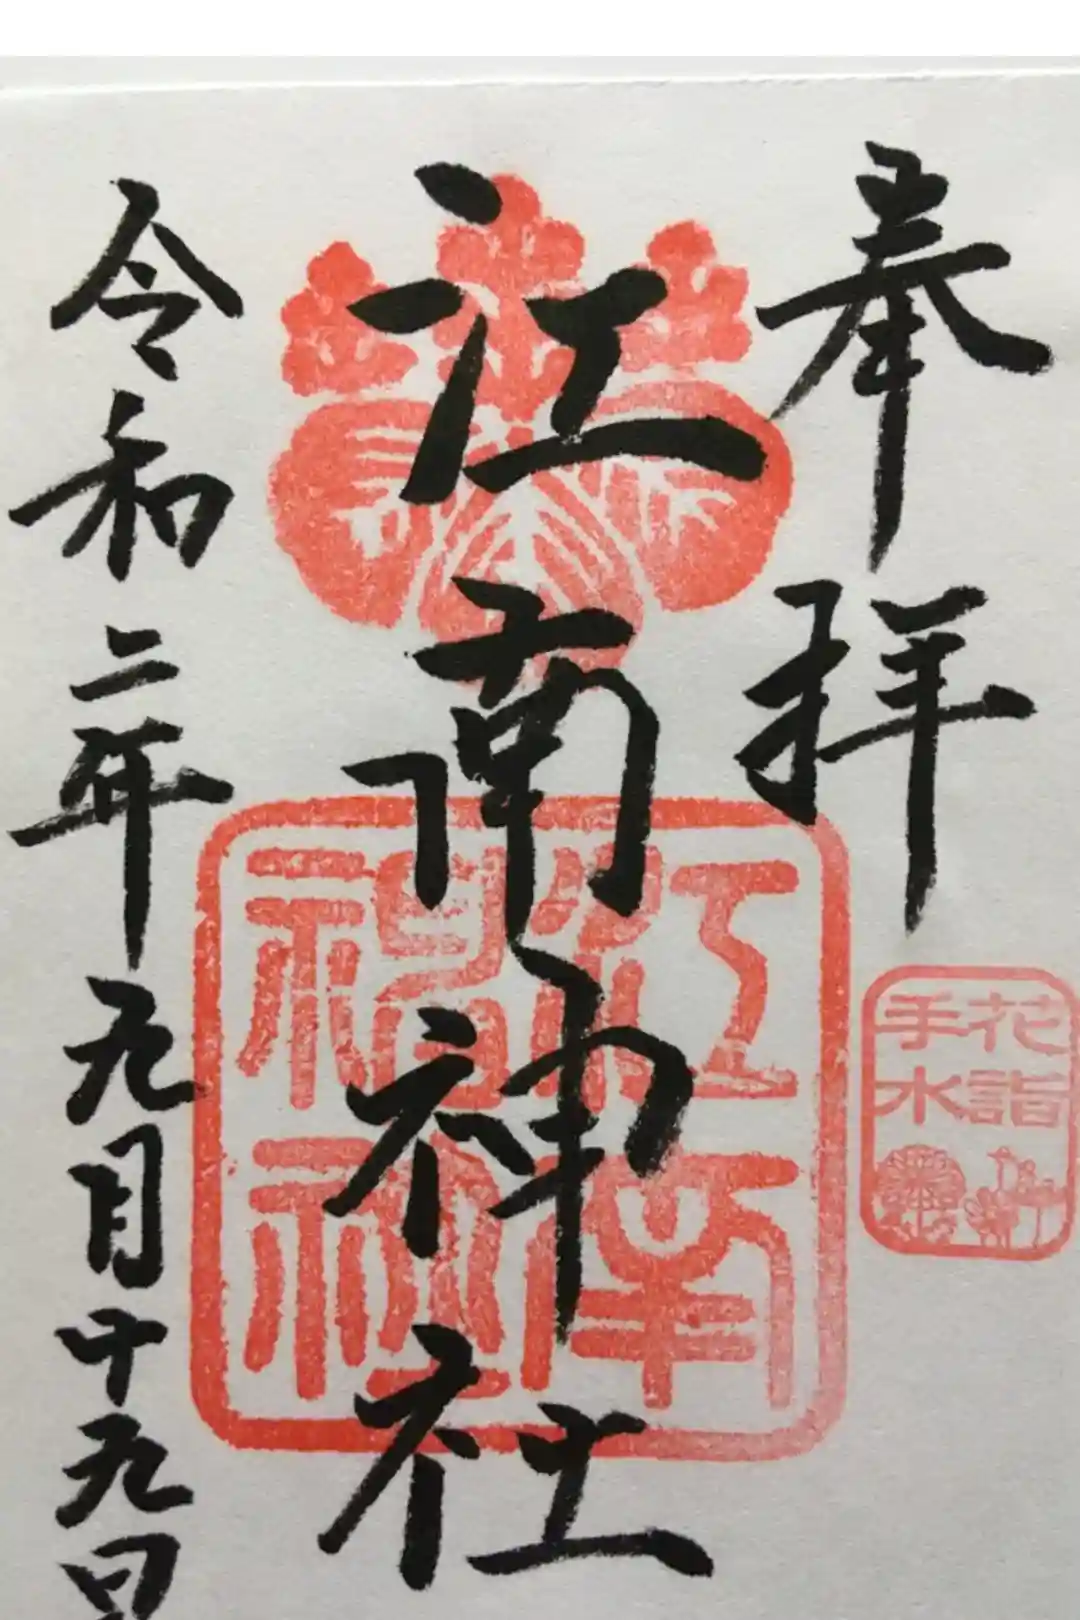 奉拝
江南神社
令和二年九月十九日
江南神社
花詣
手水